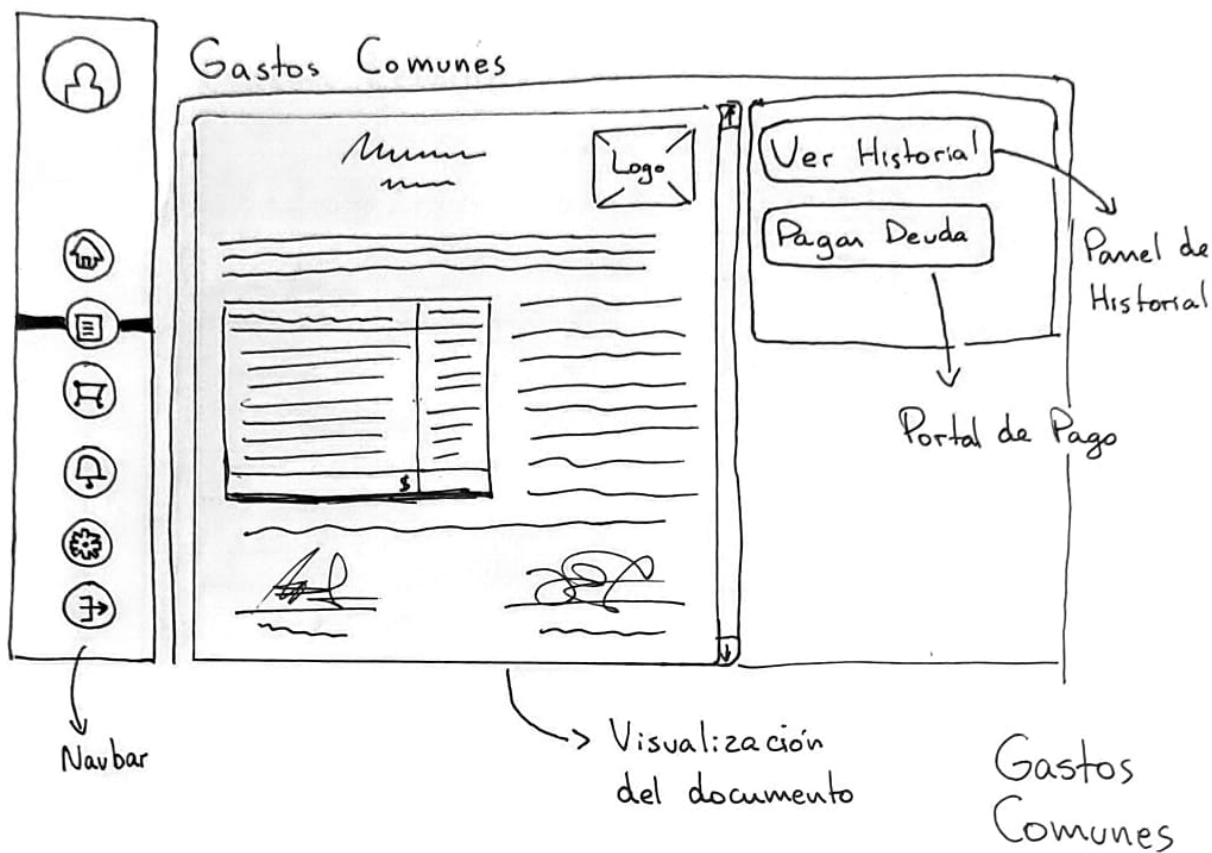 Gastos Comunes
Logo
Ver Historial
Pagar Deuda
Panel de
Historial
Portal de Pago
$
Navbar
Visualización
del documento
Gastos
Comunes